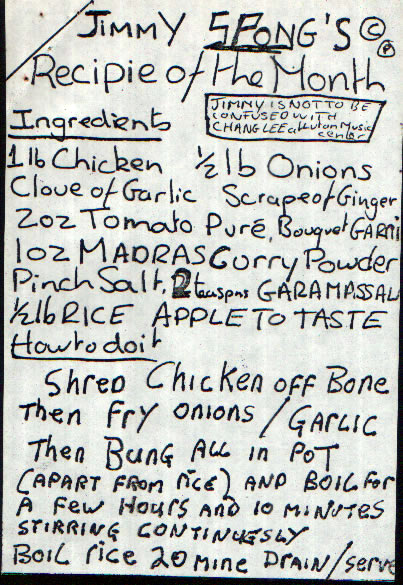 JIMMY SPONG'S © ®
Recipie of the Month
JIMMY IS NOT TO BE
CONFUSED WITH
CHANG LEE at Luton Music
center
Ingredients
1 lb Chicken ½ lb Onions
Clove of Garlic Scrape of Ginger
2oz Tomato Puré, Bouquet GARNI
1oz MADRAS Curry Powder
Pinch Salt, 2 teaspns GARAMASSAL
½ lb RICE APPLE TO TASTE
How to do it
Shred Chicken off Bone
Then Fry onions / GARLIC
Then Bung ALL in POT
(APART FROM rice) AND BOIL for
A few Hours AND 10 MINUTES
STIRRING CONTINUESLY
BOIL rice 20 mins DRAIN / serve